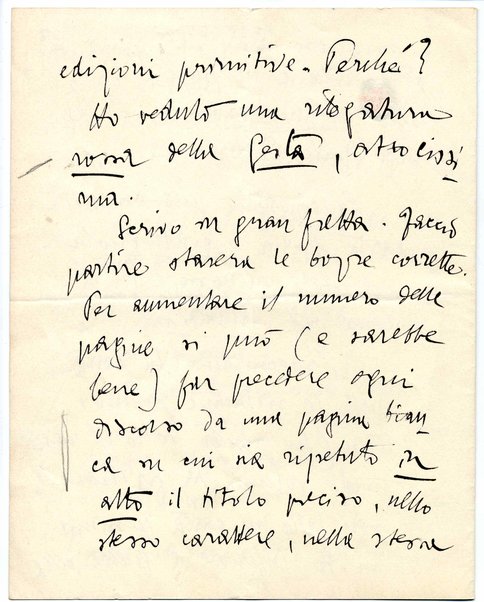 edizioni primitive. Perché?
Ho veduto una rilegatura
rossa della Gesta, atrocissi
ma.
Scrivo in gran fretta. Faccio
partire stasera le bozze corrette.
Per aumentare il numero delle
pagine si può (e sarebbe
bene) far precedere ogni
discorso da una pagina bian
ca in cui sia ripetuto in
alto il titolo preciso, nello
stesso carattere, nella stessa